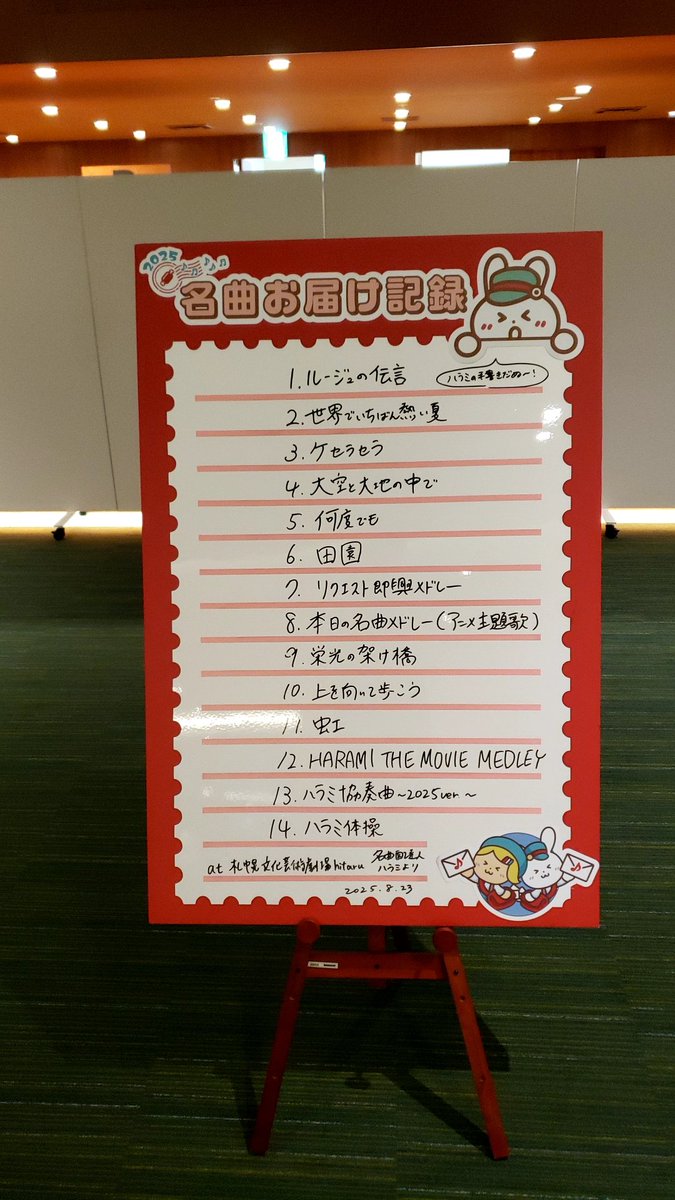 2025
名曲お届け記録
ハラミの手書きだぬ〜!
1. ルージュの伝言
2. 世界でいちばん熱い夏
3. ケセラセラ
4. 大空と大地の中で
5. 何度でも
6. 田園
7. リクエスト即興メドレー
8. 本日の名曲メドレー(アニメ主題歌)
9. 栄光の架け橋
10. 上を向いて歩こう
11. 虹
12. HARAMI THE MOVIE MEDLEY
13. ハラミ協奏曲〜2025ver〜
14. ハラミ体操
at 札幌文化芸術劇場hitaru
名曲配達人
ハラミより
2025.8.23